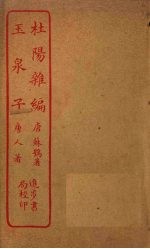 杜陽雜編
唐蘇鶚著
玉泉子
唐人著
進步書局校印